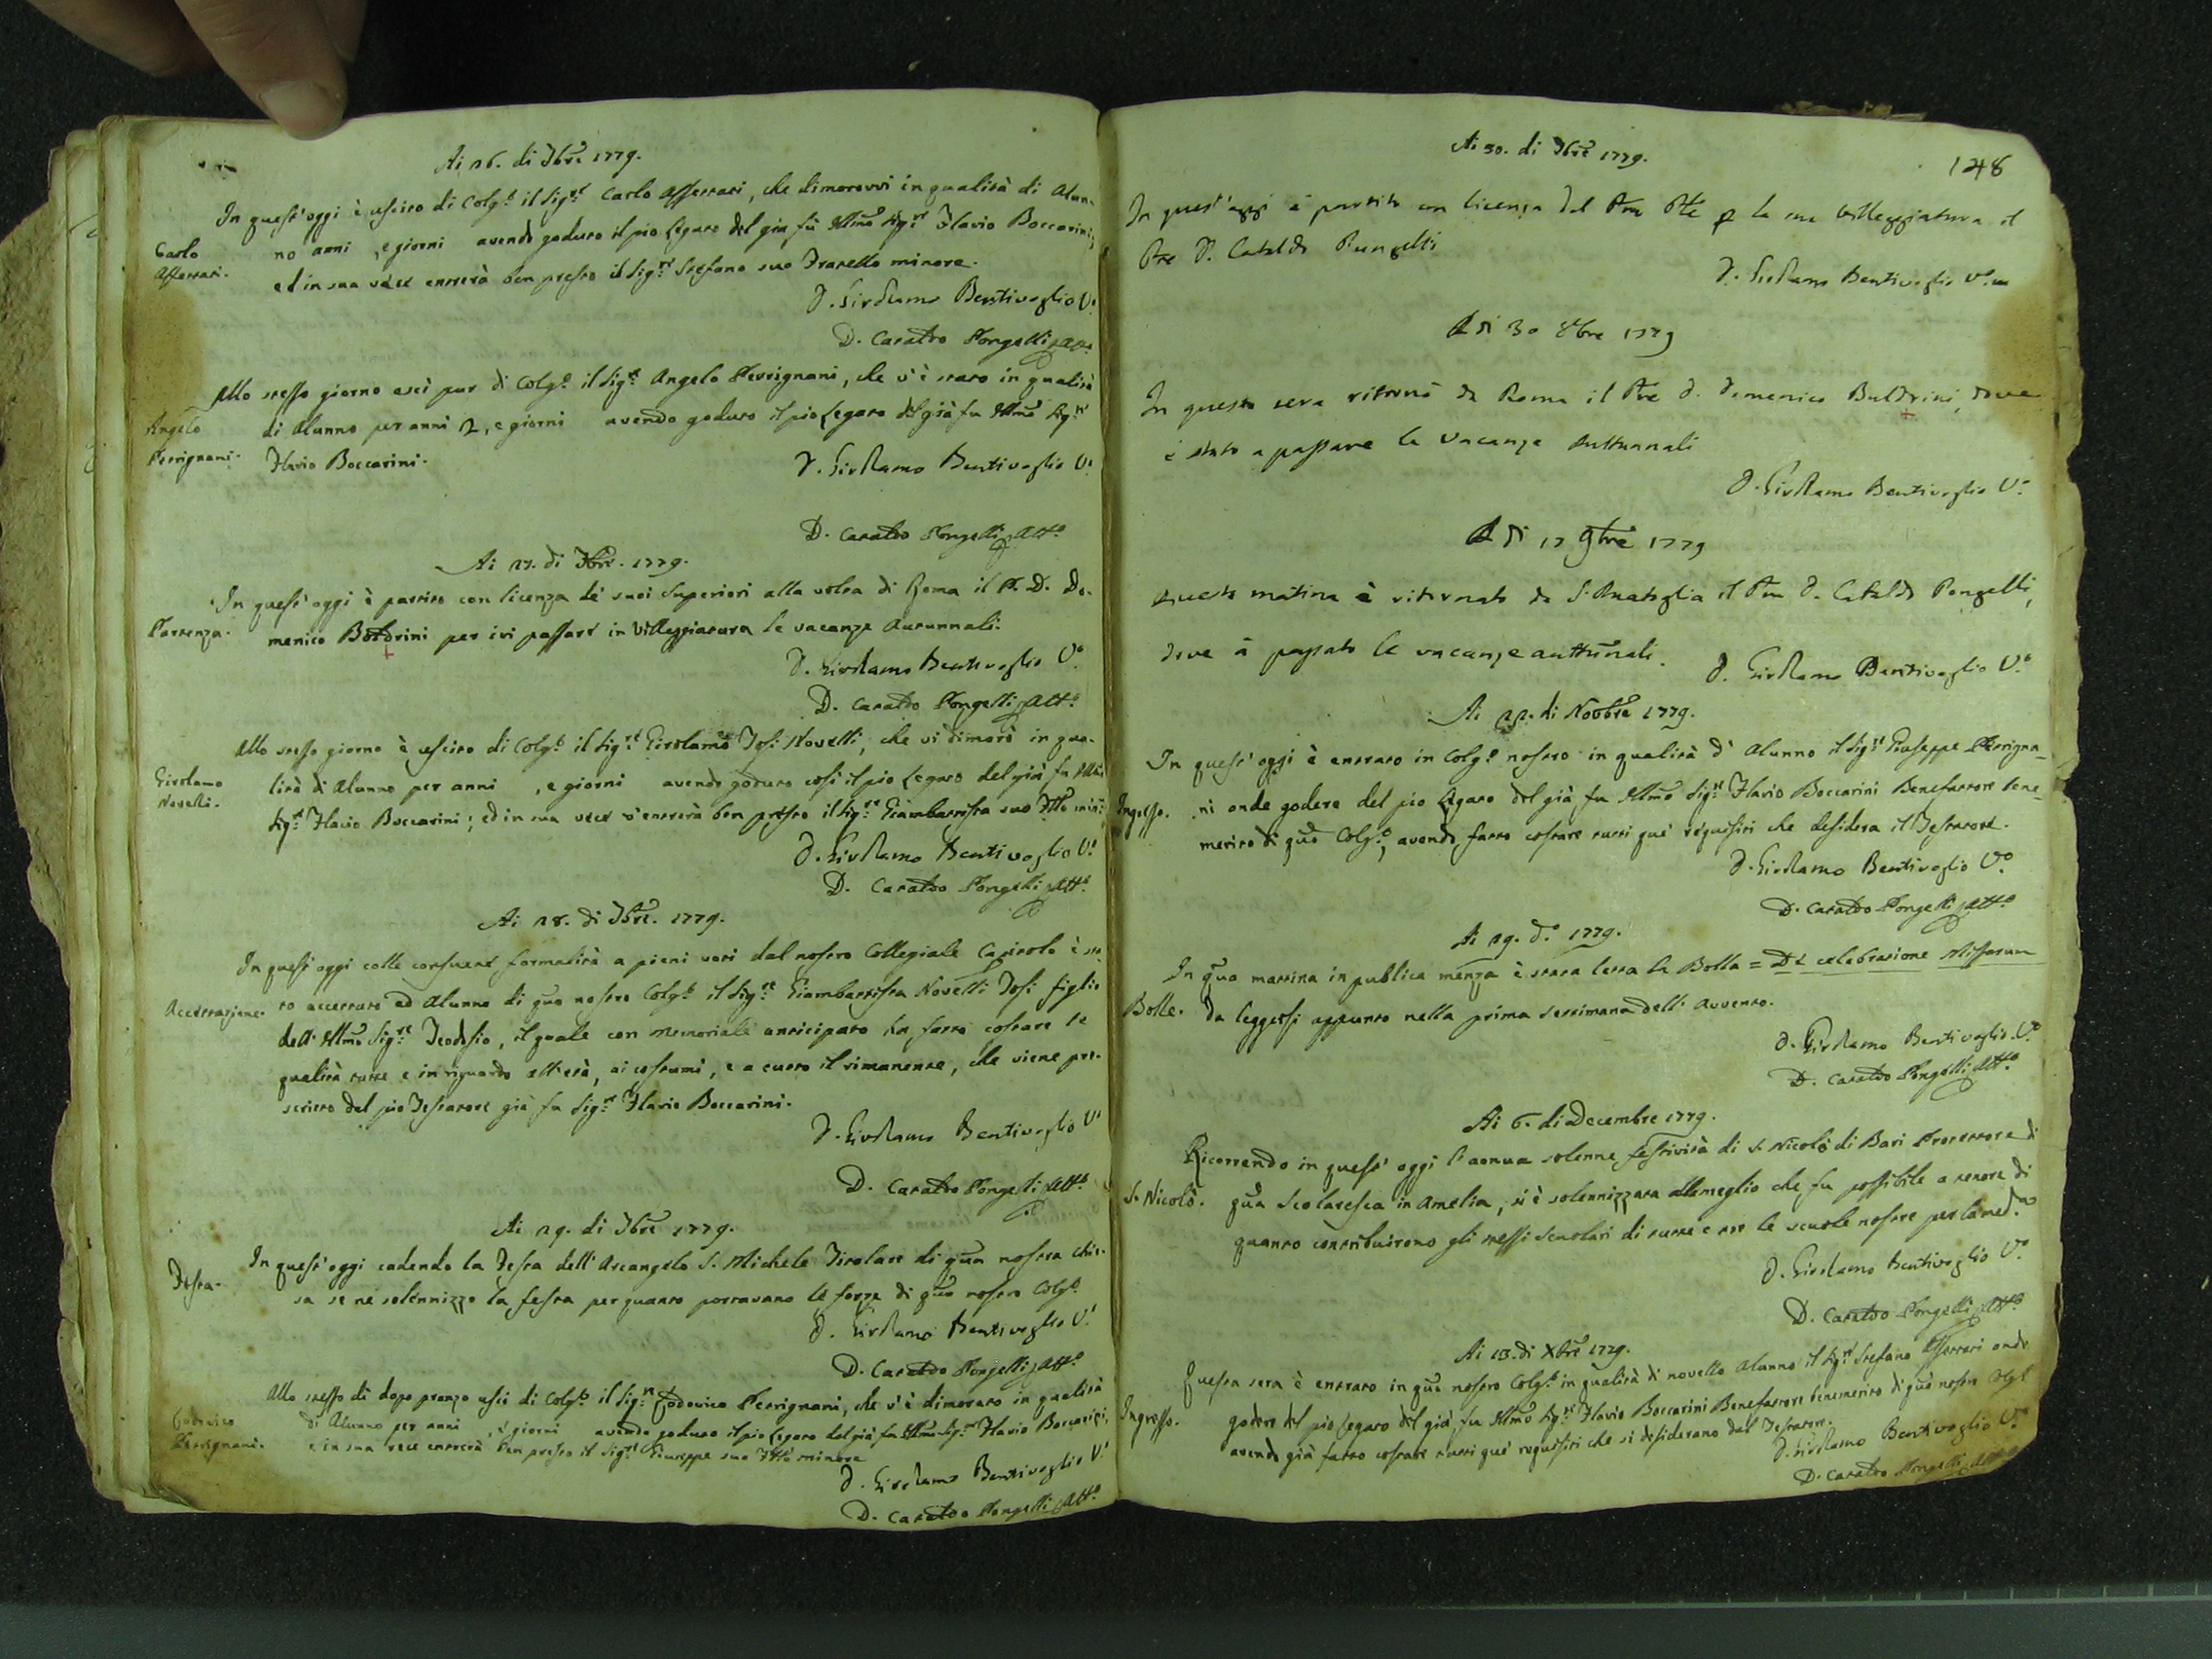 Ai 26. di 7bre 1779.
In quest'oggi è uscito di Colg.º il Sig.re Carlo Assettati, che dimorovvi in qualità di Alun-
Carlo
Assettati.
no anni , e giorni avendo goduto il pio Legato del già fù Illmo Sig.re Flavio Boccarini;
ed in sua vece entrerà ben presto il Sig.re Stefano suo Fratello minore.
D. Girolamo Bentivoglio V.º
D. Cataldo Pongelli Att.º
Allo stesso giorno uscì pur di Colg.º il Sig.re Angelo Perrignani, che v'è stato in qualità
Angelo
Perrignani.
di Alunno per anni 2, e giorni avendo goduto il pio Legato del già fu Illmo Sig.re
Flavio Boccarini.
D. Girolamo Bentivoglio V.º
D. Cataldo Pongelli Att.º
Ai 27. di 7bre. 1779.
In quest'oggi è partito con licenza de' suoi Superiori alla volta di Roma il P. D. Do-
Partenza.
menico Boldrini per ivi passare in Villeggiatura le vacanze Autunnali.
D. Girolamo Bentivoglio V.º
D. Cataldo Pongelli Att.º
Allo stesso giorno è uscito di Colg.º il Sig.re Girolamo Josi Novelli, che vi dimorò in qua-
Girolamo
Novelli.
lità di Alunno per anni , e giorni avendo goduto così il pio Legato del già fu Illmo
Sig.re Flavio Boccarini; ed in sua vece v'entrerà ben presto il Sig.re Giambattista suo Fratello
D. Girolamo Bentivoglio V.º
D. Cataldo Pongelli Att.º
Ai 28. di 7bre. 1779.
In quest'oggi colle consuete formalità a pieni voti dal nostro Collegiale Capitolo è sta-
Accettazione.
to accettato ad Alunno di qũo nostro Colg.º il Sig.re Giambattista Novelli Josi figlio
dell' Illmo Sig.re Teodosio, il quale con memoriale anticipato ha fatto costare le
qualità tutte e in riguardo all'età, ai costumi, e a tutto il rimanente, che viene pre-
scritto dal pio Testatore già fu Sig.re Flavio Boccarini.
D. Girolamo Bentivoglio V.º
D. Cataldo Pongelli Att.º
Ai 29. di 7bre 1779.
In quest'oggi cadendo la Festa dell' Arcangelo S. Michele Titolare di qũa nostra Chie-
Festa.
sa se ne solennizzo la festa per quanto portavano le forze di qũo nostro Colg.º
D. Girolamo Bentivoglio V.º
D. Cataldo Pongelli Att.º
Allo stesso dì dopo pranzo uscì di Colg.º il Sig.re Lodovico Perrignani, che v'è dimorato in qualità
Lodovico
Perrignani.
di Alunno per anni , e giorni avendo goduto il pio Legato del già fu Illmo Sig.re Flavio Boccarini,
e in sua vece entrerà ben presto il Sig.re Giuseppe suo Fratello minore
D. Girolamo Bentivoglio V.º
D. Cataldo Pongelli Att.º
148
Ai 30. di 7bre 1779.
In quest'oggi è partito con licenza del Pre Pte p la sua Villeggiatura il
Pre D. Cataldo Pungelli
D. Girolamo Bentivoglio V.º
A di 30 8bre 1779
In questa sera ritornò da Roma il Pre D. Domenico Buldrini, dove
è stato a passare le Vacanze Auttunnali
D. Girolamo Bentivoglio V.º
A di 17 9bre 1779
Questa matina è ritornato da S. Anatoglia il Pre D. Cataldo Pongelli,
dove à passato le vacanze auttunali.
D. Girolamo Bentivoglio V.º
Ai 22. di Novbre 1779.
In quest'oggi è entrato in Colg.º nostro in qualità d' Alunno il Sig.re Giuseppe Perrigna-
Ingresso.
ni onde godere del pio Legato del già fu Illmo Sig.re Flavio Boccarini Benefattore bene-
merito di qũo Colg.º, avendo fatto costare tutti que' requisiti che desidera il Testatore.
D. Girolamo Bentivoglio V.º
D. Cataldo Pongelli Att.º
Ai 29. d.º 1779.
In qũa mattina in publica menza è stata letta la Bolla = De celebratione Missarum
Bolle.
da leggersi appunto nella prima settimana dell' Avvento.
D. Girolamo Bentivoglio V.º
D. Cataldo Pongelli Att.º
Ai 6. di Decembre 1779.
Ricorrendo in quest' oggi l'annua solenne festività di S. Nicolò di Bari Protettore di
S. Nicolò.
qũa Scolaresca in Amelia, si è solennizzata allameglio che fu possibile a tenore di
quanto contribuirono gli stessi Scuolari di tutte e tre le scuole nostre per la med.ma
D. Girolamo Bentivoglio V.º
D. Cataldo Pongelli Att.º
Ai 13. di Xbre 1779.
Questa sera è entrato in qũo nostro Colg.º in qualità di novello Alunno il Sig.re Stefano Assettati onde
Ingresso.
godere del pio Legato del già fu Illmo Sig.re Flavio Boccarini Benefattore benemerito di qũo nostro Colg.º
avendo già fatto costare tutti que' requisiti che si desiderano dal Testatore.
D. Girolamo Bentivoglio V.º
D. Cataldo Pongelli Att.º